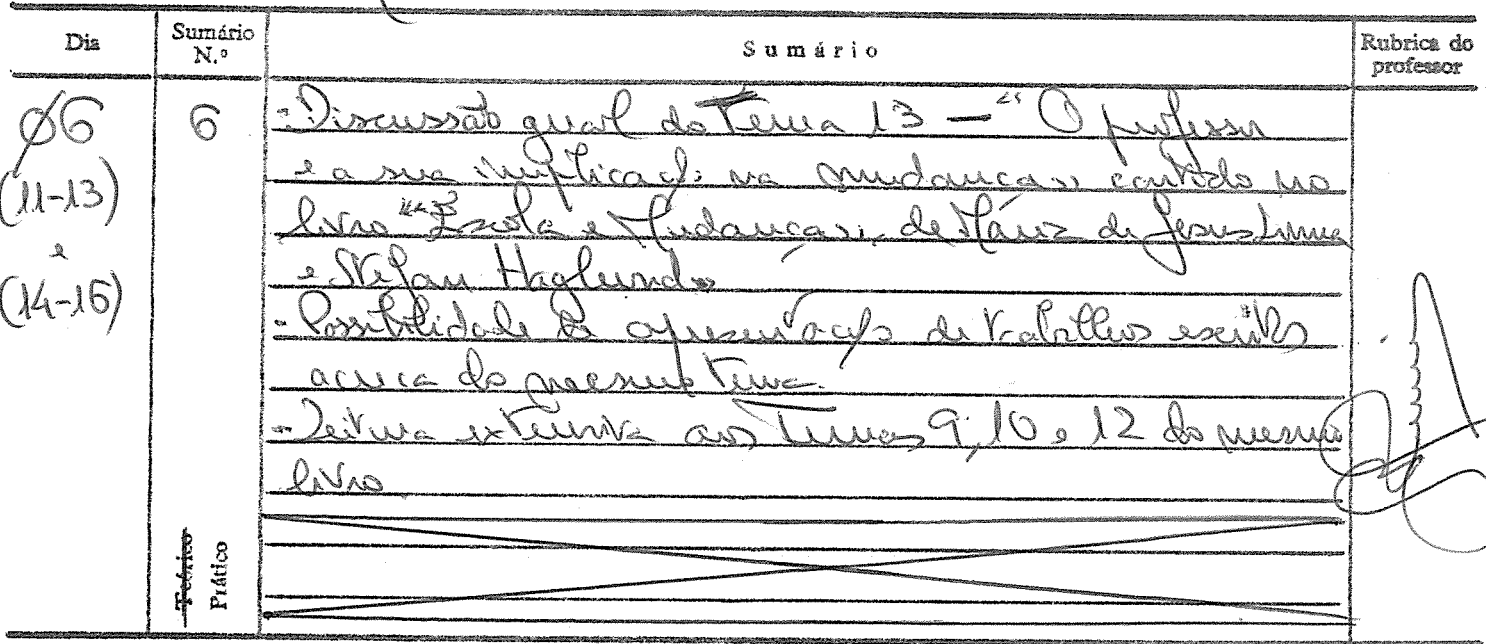 Dia
Sumário N.º
Sumário
Rubrica do professor
06
(11-13)
e
(14-16)
6
- Discussão geral do Tema 13 — "O professor
e a sua implicação na mudança" contido no
livro "Escola e Mudança", de Maria de Jesus Lima
e Stefan Haglund
- Possibilidade de apresentação de trabalhos escritos
acerca do mesmo tema.
- Leitura extensiva aos Temas 9, 10 e 12 do mesmo
livro
Teórico
Prático